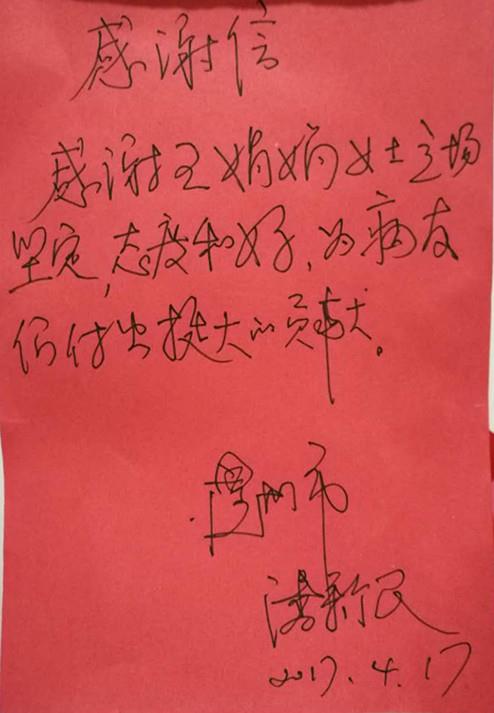 感谢信
感谢王娟娟女士立场
坚定,态度和好,为病友
们付出挺大的贡献。
州市
潘新民
2017.4.17